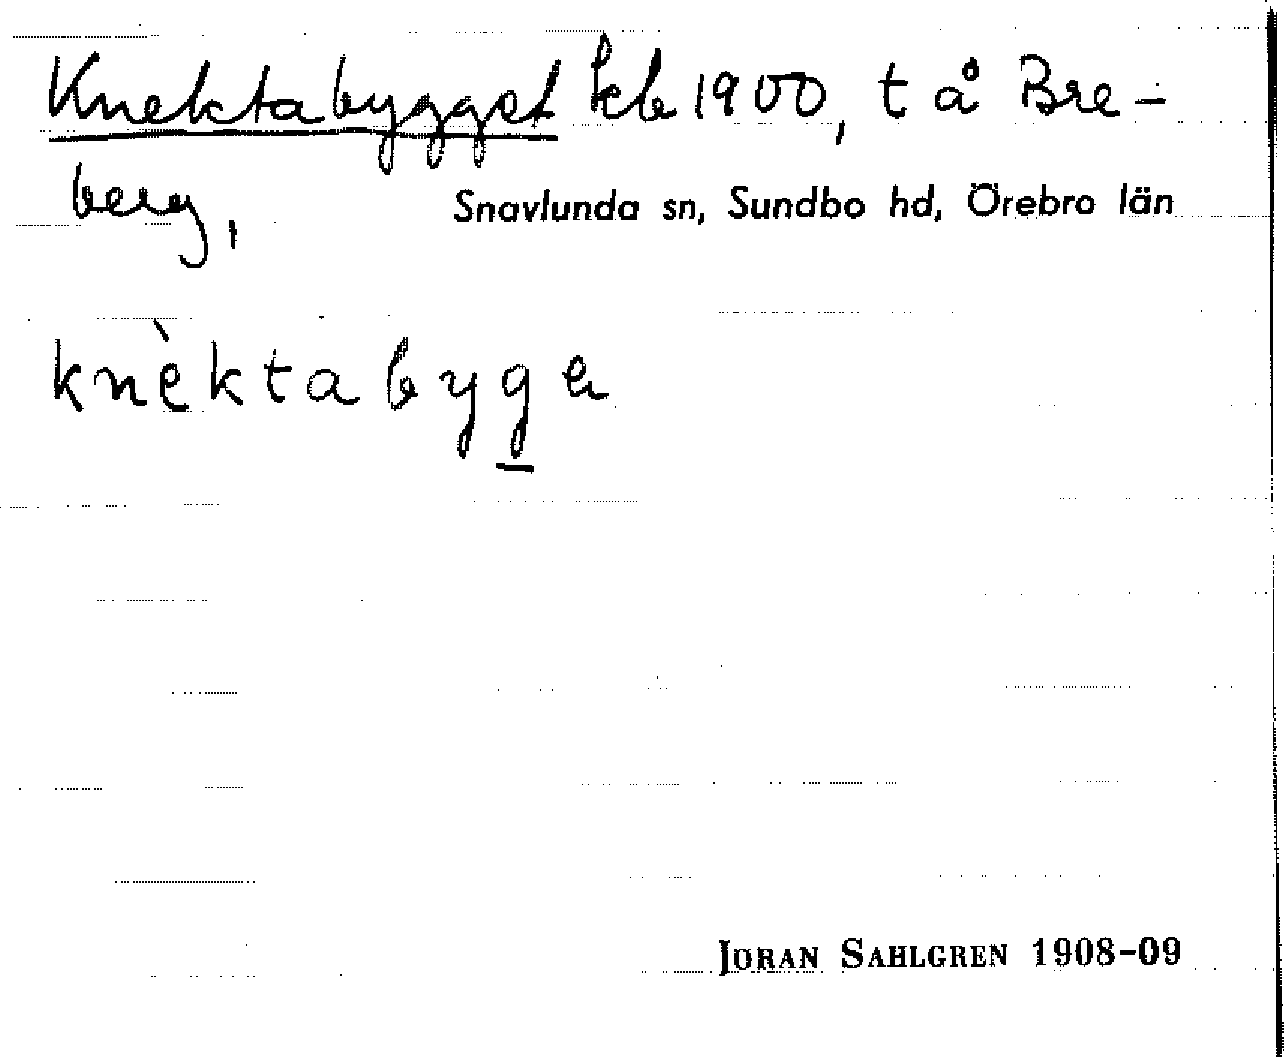 Knektabygget kb 1900, t å Bre-
berg,
Snavlunda sn, Sundbo hd, Örebro län
knèktabyge
JÖRAN SAHLGREN 1908-09